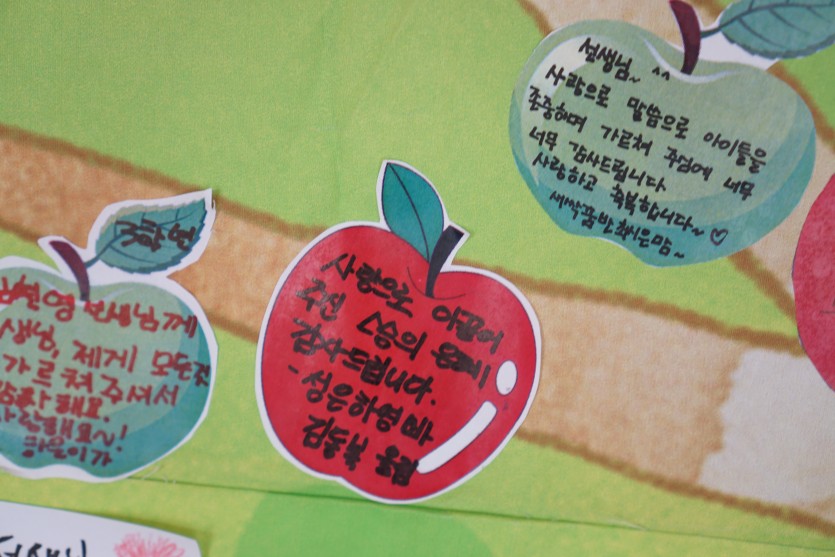 선생님~ ^^
사랑으로 말씀으로 아이들을
존중하며 가르쳐 주심에 너무
너무 감사드립니다
사랑하고 축복합니다~ ♡
새싹꿈반 최시은맘~
사랑으로 이끌어
주신 스승의 은혜
감사드립니다.
- 성은하영 빠
김동북 올림
선생님께
생님, 제게 모든것
가르쳐주셔서
감사해요.
사랑해요~!
하율이가
선생님